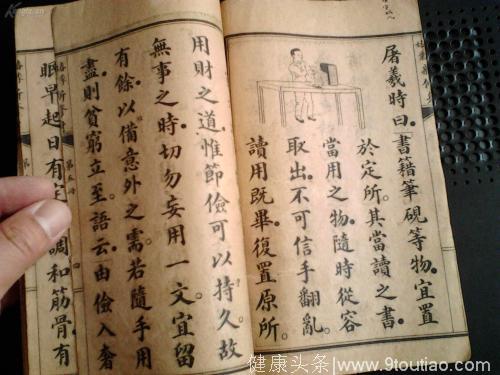 屠羲時曰。書籍筆硯等物。宜置
於定所。其當讀之書。
當用之物。隨時從容
取出。不可信手翻亂。
讀用既畢。復置原所。
用財之道。惟節儉可以持久。故
無事之時。切勿妄用一文。宜留
有餘。以備意外之需。若隨手用
盡。則貧窮立至。語云。由儉入奢
眠早起。日有定
調和筋骨。有
健康头条:www.9toutiao.com